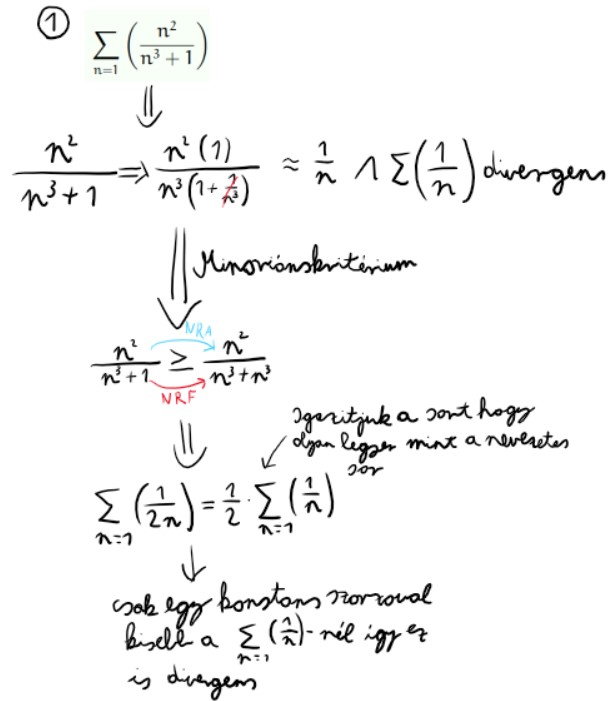 ①
∑_{n=1} (n²/(n³ + 1))
⇓
n²/(n³+1) ⇒ n²(1)/(n³(1+1/n³)) ≈ 1/n ∧ ∑(1/n) divergens
⇓ Minoránskritérium
NRA
n²/(n³+1) ≥ n²/(n³+n³)
NRF
⇓
igazítjuk a sort hogy
olyan legyen mint a nevezetes
sor
∑_{n=1} (1/2n) = 1/2 · ∑_{n=1} (1/n)
↓
csak egy konstans szorzoval
kisebb a ∑_{n=1} (1/n)-nél így ez
is divergens